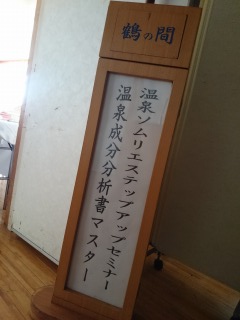 鶴の間
温泉ソムリエステップアップセミナー
温泉成分分析書マスター